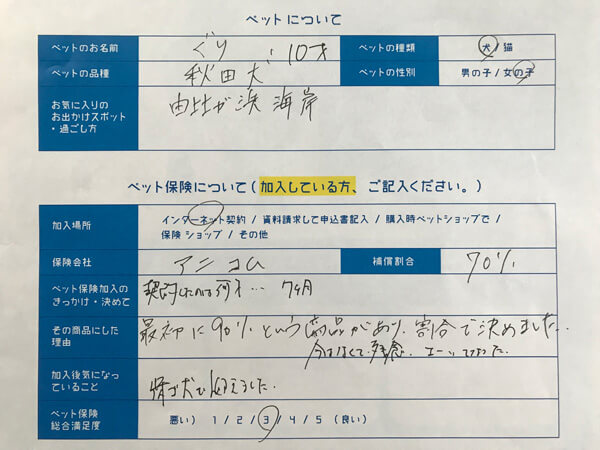 ペットについて
ペットのお名前 ぐり 10才 ペットの種類 犬 / 猫
ペットの品種 秋田犬 ペットの性別 男の子 / 女の子
お気に入りの
お出かけスポット
・過ごし方
由比が浜 海岸
ペット保険について(加入している方、ご記入ください。)
加入場所
インターネット契約 / 資料請求して申込書記入 / 購入時ペットショップで /
保険ショップ / その他
保険会社 アニコム 補償割合 70%
ペット保険加入の
きっかけ・決めて
7ヶ月
その商品にした
理由
最初に90%という商品があり、割合で決めました...
今はなくて残念。
加入後気になっ
ていること
ペット保険
総合満足度
悪い) 1 / 2 / 3 / 4 / 5 (良い)